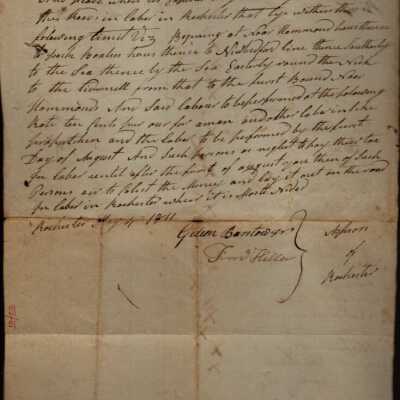 this Year in labor in Rochester that lys within the
following limits Viz Begining at Noar Hammond hous thence
to Bowlin hous thence to line thence Southerly
to the Sea thence by the Sea Easterly round the Nick
to the from that to the furst Bound Noar
Hammonds And Said Labour to be performed at the following
Rate ten Cents pur our for a man and other labor in like
proportshon and the labor to be performed by the furst
Day of August And Such persons as neglet to pay their tax
for labor untill after the furst of august you then of Such
Persons air to Colect the Money and lay it out on the roads
for labor in Rochester whear it is Moste Nided
Rochester May 4 1811
Gideon Barstow Jr
Asesors
of
Rochester